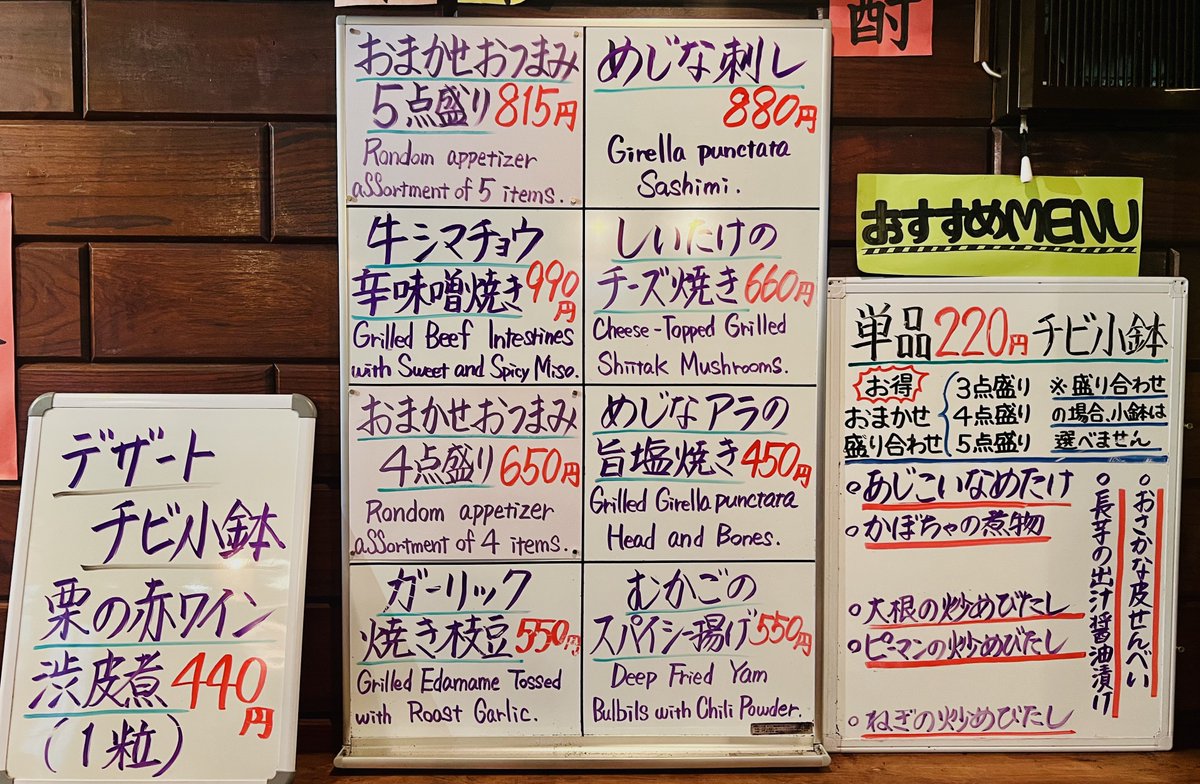 デザート
チビ小鉢
栗の赤ワイン
渋皮煮 440円
(1粒)
おまかせおつまみ
5点盛り 815円
Random appetizer
assortment of 5 items.
めじな刺し
880円
Girella punctata
Sashimi.
牛シマチョウ
辛味噌焼き 990円
Grilled Beef Intestines
with Sweet and Spicy Miso.
しいたけの
チーズ焼き 660円
Cheese-Topped Grilled
Shiitak Mushrooms.
おまかせおつまみ
4点盛り 650円
Random appetizer
assortment of 4 items.
めじなアラの
旨塩焼き 450円
Grilled Girella punctata
Head and Bones.
ガーリック
焼き枝豆 550円
Grilled Edamame Tossed
with Roast Garlic.
むかごの
スパイシー揚げ 550円
Deep Fried Yam
Bulbils with Chili Powder.
酎
おすすめMENU
単品220円チビ小鉢
お得
おまかせ
盛り合わせ
3点盛り
4点盛り
5点盛り
※盛り合わせ
の場合、小鉢は
選べません
。あじこいなめたけ
。かぼちゃの煮物
。大根の炒めびたし
。ピーマンの炒めびたし
。ねぎの炒めびたし
。おさかな皮せんべい
。長芋の出汁醤油漬け